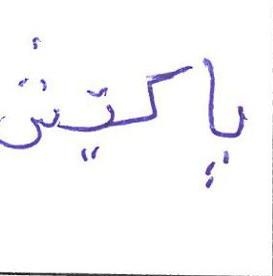 پاکتیش